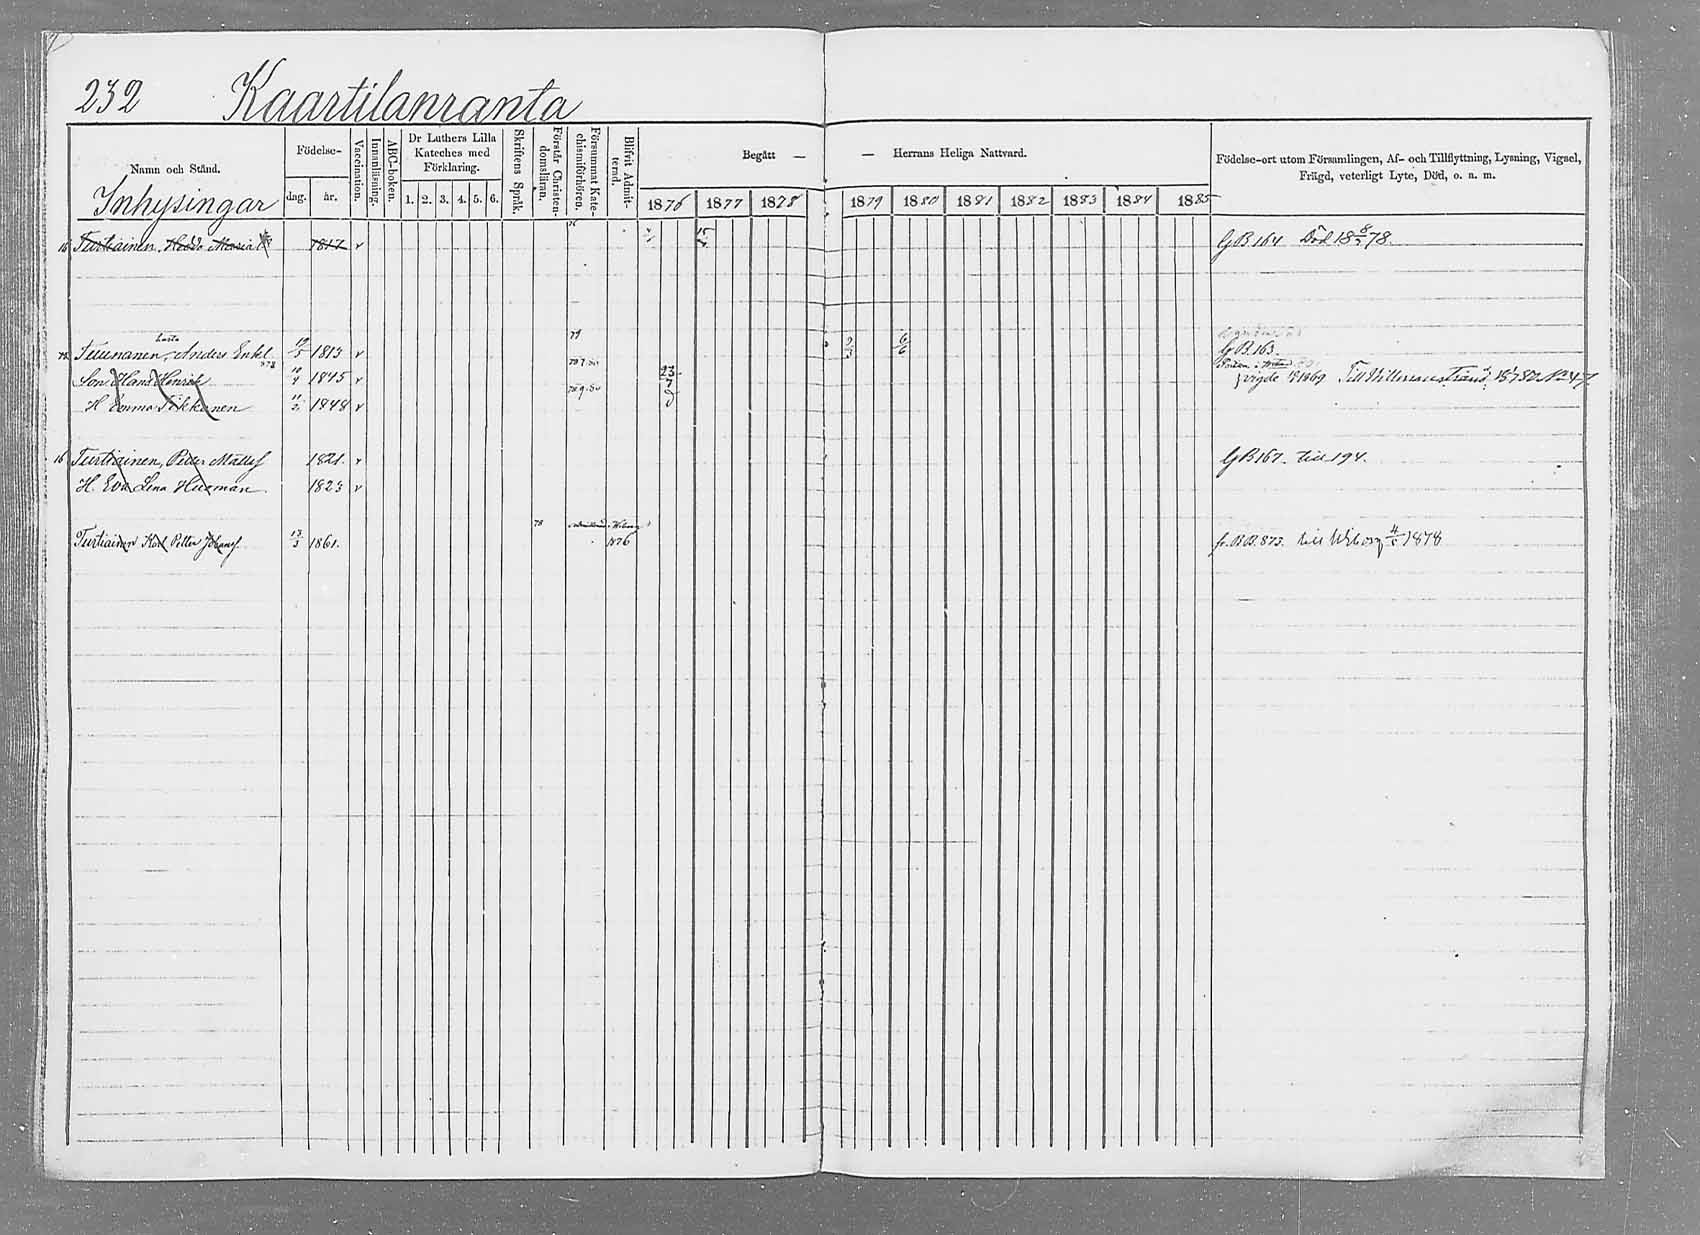 232 Kaartilanranta
Namn och Stånd.
Inhysingar
Födelse-
dag. år.
Vaccination.
Innanläsning.
ABC-boken.
Dr Luthers Lilla
Kateches med
Förklaring.
1. 2. 3. 4. 5. 6.
Skriftens Språk.
Förstår Christen-
domsläran.
Försummat Kate-
chismiförhören.
Blifvit Admit-
terad.
Begått — — Herrans Heliga Nattvard.
1876 1877 1878 1879 1880 1881 1882 1883 1884 1885
Födelse-ort utom Församlingen, Af- och Tillflyttning, Lysning, Vigsel,
Frägd, veterligt Lyte, Död, o. a. m.
16 Turtiainen, Maria 1817 v GB 164 Död 18 78.
79
Anders Enkel 1813 v 2/3 6/6 GB.163.
Son Hans Henrik 10/4 1845 v 23 vigde 1869 Till Willmanstrand
H Emma Tikkanen 1848 v
16 Turtiainen, Petter Mattsf 1821. v GB 167. till 194.
H. Eva Lena Husman 1823 v
78
Turtiainen Karl Petter Johansf. 1861. 1876 fr. BB. 873. till Wiborg 1878